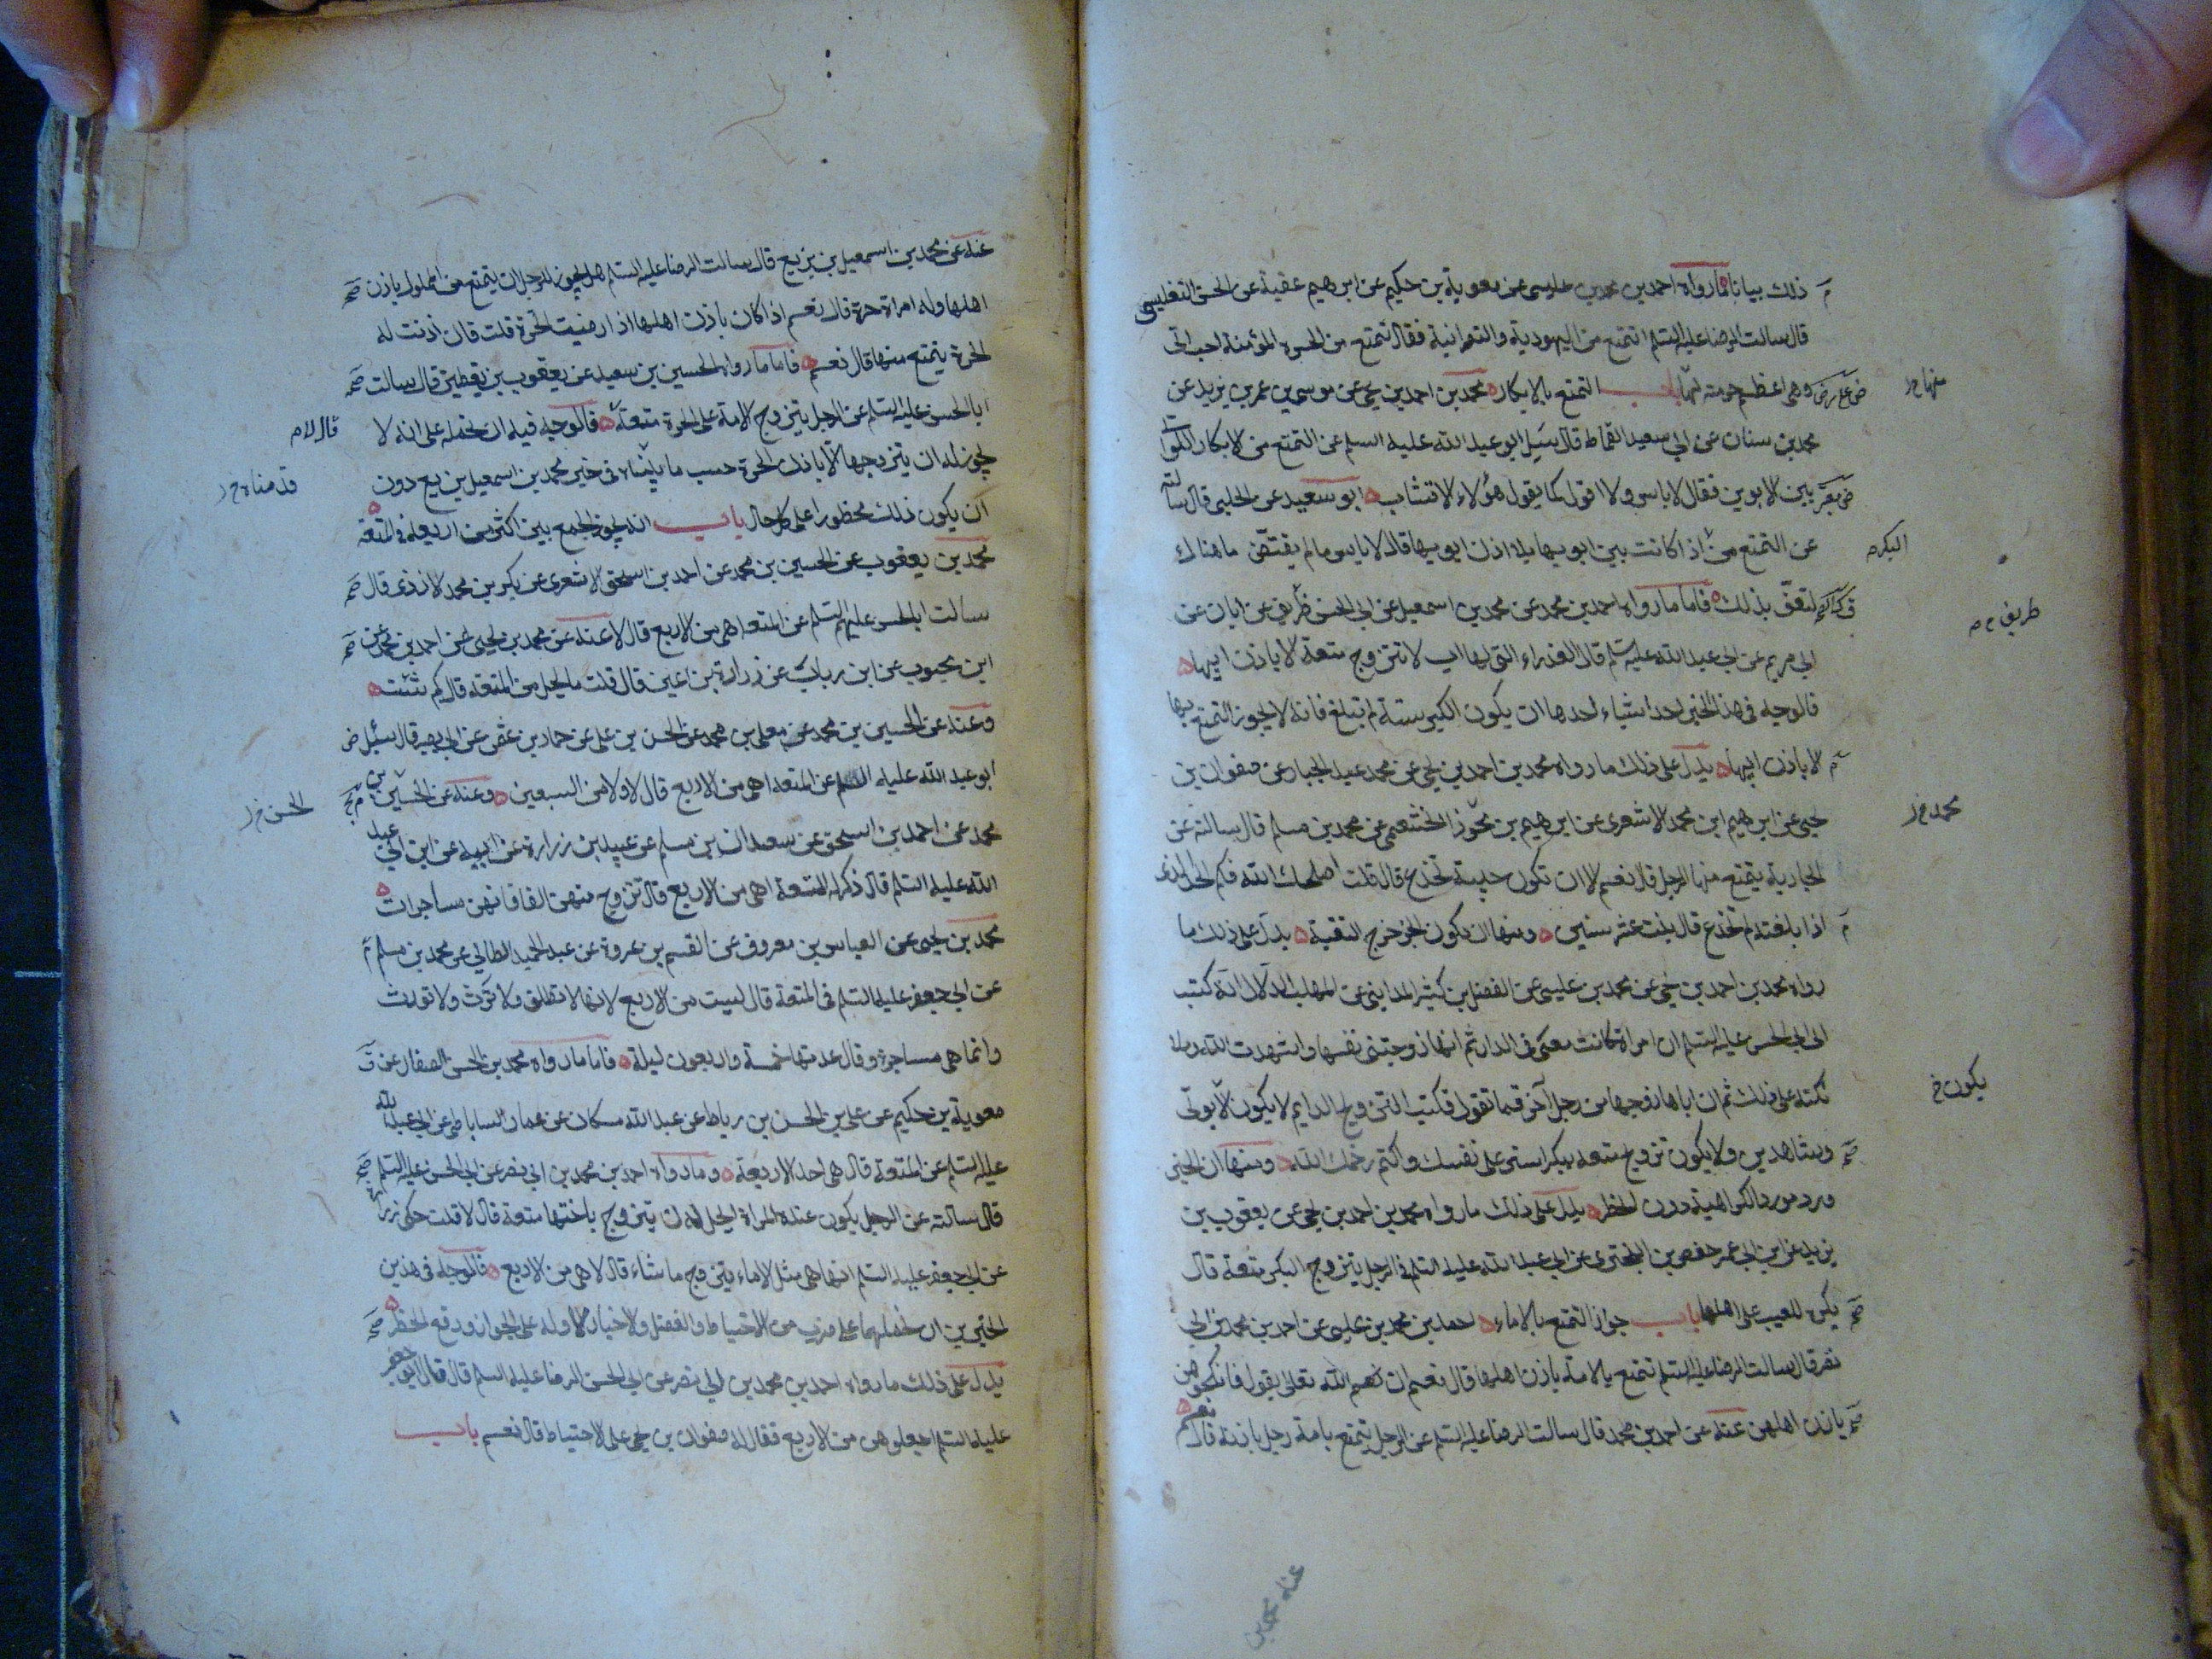 ذلك بيانا ما رواه احمد بن محمد بن عيسى عن معوية بن حكيم عن ابرهيم عقبة عن الحسن التفليسى
قال سالت الرضا عليه السلم اتتمتع من اليهودية والنصرانية فقال تتمتع من الحرة المؤمنة احب الى
وهى اعظم حرمة منهما باب التمتع بالابكار محمد بن احمد بن يحيى عن موسى بن عمر بن يزيد عن
منها خ ر
محمد بن سنان عن ابى سعيد القماط قال سئل ابو عبد الله عليه السلم عن التمتع من الابكار اللواتى
بين الابوين فقال لا باس ولا اقول كما يقول هؤلاء الاقشاب ابو سعيد عن الحلبى قال سالته
عن التمتع من اذا كانت بين ابويها بلا اذن ابويها قال لا باس ما لم يقتض ما هناك
البكر م
لتعف بذلك فاما ما رواه احمد بن محمد عن محمد بن اسمعيل عن ابى الحسن ظريف عن ابان عن
طريف خ م
ابى مريم عن ابى عبد الله عليه السلم قال العذراء التى لها اب لا تتزوج متعة الا باذن ابيها
فالوجه فى هذا الخبر احد اشياء احدها ان يكون البكر سنة لم تبلغ فانه لا يجوز التمتع بها
الا باذن ابيها يدل على ذلك ما رواه محمد بن احمد بن يحيى عن محمد عبد الجبار عن صفوان بن
يحيى عن ابرهيم ابن محمد الاشعرى عن ابرهيم بن محرز الخثعمى عن محمد بن مسلم قال سالته عن
محمد خ ر
الجارية يتمتع منها الرجل قال نعم الا ان تكون صبية تخدع قال قلت اصلحك الله فكم الحد الذى
اذا بلغته لم تخدع قال بنت عشر سنين ومنها ان يكون الخبر خرج التقية يدل على ذلك ما
رواه محمد بن احمد بن يحيى عن محمد بن عيسى عن الفضل بن كثير المداينى عن المهلب الدلال انه كتب
الى ابى الحسن عليه السلم ان امراة كانت معى فى الدار ثم انها زوجتنى نفسها واشهدت الله وملا
ئكته على ذلك ثم ان اباها زوجها من رجل آخر فما تقول فكتب التزويج الدايم لا يكون الا بولى
يكون خ
وشاهدين ولا يكون تزويج متعة ببكر استر على نفسك واكتم رحمك الله ومنها ان الخبر
ورد مورد الكراهية دون الحظر يدل على ذلك ما رواه محمد بن احمد بن يحيى عن يعقوب بن
يزيد عن ابن ابى عمر حفص بن البخترى عن ابى عبد الله عليه السلم فى الرجل يتزوج البكر متعة قال
يكره للعيب على اهلها باب جواز التمتع بالاماء احمد بن محمد بن عيسى عن احمد بن محمد بن ابى
نصر قال سالت الرضا عليه السلم تتمتع بالامة باذن اهلها قال نعم ان الله تعالى يقول فانكحوهن
باذن اهلهن عنه عن احمد بن محمد قال سالت الرضا عليه السلم عن الرجل يتمتع بامة رجل باذنه قال نعم
عنه محمد بن
عنه عن محمد بن اسمعيل بن بزيع قال سالت الرضا عليه السلم هل يجوز للرجل ان يتمتع من المملوك باذن
اهلها وله امراة حرة قال نعم اذا كان باذن اهلها اذا رضيت الحرة قلت فان اذنت له
الحرة يتمتع منها قال نعم فاما ما رواه الحسين بن سعيد عن يعقوب بن يقطين قال سالت
ابا الحسن عليه السلم عن الرجل يتزوج الامة على الحرة متعة فالوجه فيه ان نحمله على انه لا
قال لا م
يجوز له ان يتزوجها الا باذن الحرة حسب ما بيناه فى خبر محمد بن اسمعيل بن بزيع دون
قدمناه خ ر
ان يكون ذلك محظورا على كل حال باب انه يجوز الجمع بين اكثر من اربعة فى المتعة
محمد بن يعقوب عن الحسين بن محمد عن احمد بن اسحق الاشعرى عن بكر بن محمد الازذى قال
سالت ابا الحسن عليه السلم عن المتعة اهى من الاربع قال لا عنه عن محمد بن يحيى عن احمد بن محمد عن
ابن محبوب عن ابن رياب عن زرارة بن اعين قال قلت ما يحل من المتعة قال كم شئت
وعنه عن الحسين بن محمد عن معلى بن محمد عن الحسن بن على عن حماد بن عثمن عن ابى بصير قال سئل
ابو عبد الله عليه السلم عن المتعة اهى من الاربع قال لا ولا من السبعين وعنه عن الحسين بن
الحسن خ ر
محمد عن احمد بن اسحق عن سعدان بن مسلم عن عبيد بن زرارة عن ابيه عن ابن ابى عبد
الله عليه السلم قال ذكر له المتعة اهى من الاربع قال تزوج منهن الفا فانهن مستاجرات
محمد بن يحيى عن العباس بن معروف عن القسم بن عروة عن عبد الحميد الطائى عن محمد بن مسلم
عن ابى جعفر عليه السلم فى المتعة قال ليست من الاربع لانها لا تطلق ولا ترث ولا تورث
وانما هى مستاجرة وقال عدتها خمسة واربعون ليلة فاما ما رواه محمد بن الحسن الصفار عن
معوية بن حكيم عن على بن الحسن بن رباط عن عبد الله مسكان عن عمار الساباطى عن ابى عبد الله
عليه السلم عن المتعة قال هى احد الاربعة وما رواه احمد بن محمد بن ابى نصر عن ابى الحسن عليه السلم
قال سالته عن الرجل يكون عنده المراة ايحل له ان يتزوج باختها متعة قال لا قلت حكى زرارة
عن ابى جعفر عليه السلم انها هى مثل الاماء يتزوج ما شاء قال لا هى من الاربع فالوجه فى هذين
الخبرين ان نحملهما على ضرب من الاحتياط والفضل والاخبار الاوله على الجواز ورفع الحظر
يدل على ذلك ما رواه احمد بن محمد بن ابى نصر عن ابى الحسن الرضا عليه السلم قال قال ابو جعفر
عليه السلم اجعلوهن من الاربع فقال له صفوان بن يحيى على الاحتياط قال نعم باب